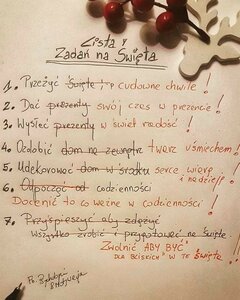 Lista
Zadań na Święta
1. Przeżyć Święta i cudowne chwile!
2. Dać prezenty swój czas w prezencie!
3. Wysłać prezenty w świat radość!
4. Ozdobić dom na zewnątrz twarz uśmiechem!
5. Udekorować dom w środku serce wiarą i nadzieją!
6. Odpocząć od codzienności
Docenić to co ważne w codzienności!
7. Przyśpieszyć aby zdążyć
wszystko zrobić i przygotować na Święta
Zwolnić ABY BYĆ
DLA BLISKICH W TE ŚWIĘTA!